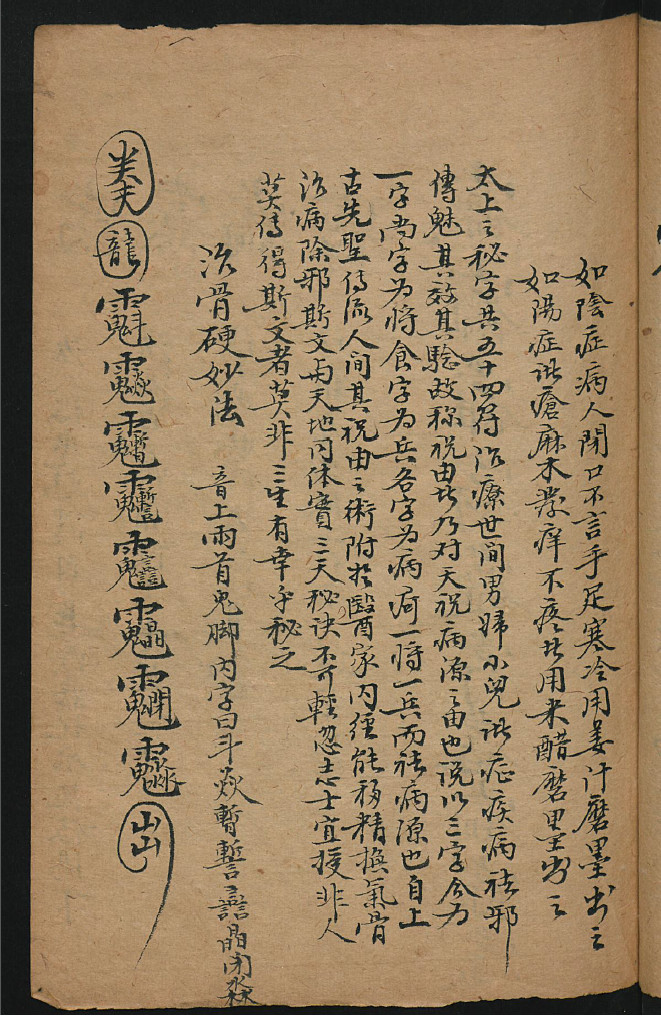 如陰症病人閉口不言手足寒冷用姜汁磨墨出之
如陽症瘡麻木癢痒不疼者用米醋磨墨出之
太上之秘字共五十四符治療世间男婦小兒症疾病祛邪
傳魅其效其驗故称祝由者乃对天祝病源之由也说以三字合为
一字尚字为将食字为兵各字为病一将一兵而祛病源也自上
古先聖传流人间其祝由之術附於醫家内經能移精換氣骨
治病除邪斯文与天地同体實三天秘诀不可輕忽志士宜授非人
莫传得斯文者莫非三生有幸乎秘之
治骨硬妙法 音上雨首鬼脚内字曰斗焱暫誓譶晶闭淼
龍